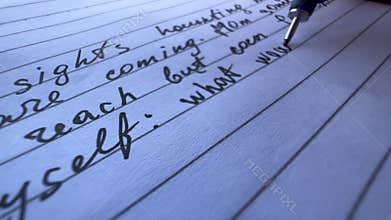 sights haunting
are coming. from
reach but can
yself: what
MEGAPIXL
MEGAPIXL